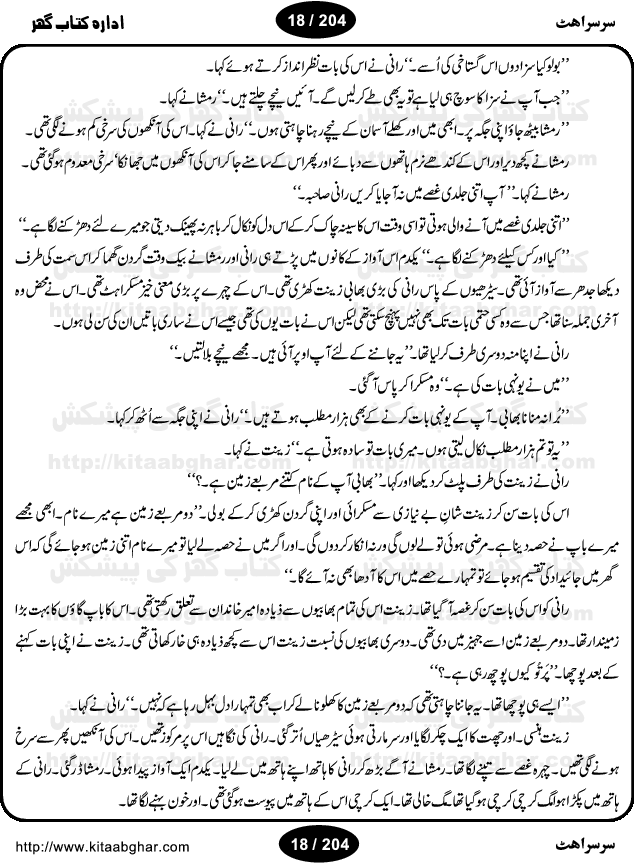 سرسراھٹ
18 / 204
ادارہ کتاب گھر
’’بولو کیا سزا دوں اس گستاخی کی اُسے۔‘‘ رانی نے اس کی بات نظر انداز کرتے ہوئے کہا۔
’’جب آپ نے سزا کا سوچ ہی لیا ہے تو یہ بھی طے کر لیں گے۔ آئیں نیچے چلتے ہیں۔‘‘ رمشا نے کہا۔
’’رمشا بیٹھ جاؤ اپنی جگہ پر۔ ابھی میں اور کھلے آسمان کے نیچے رہنا چاہتی ہوں۔‘‘ رانی نے کہا۔ اس کی آنکھوں کی سرخی کم ہونے لگی تھی۔
رمشا نے کچھ دیر اور اس کے کندھے نرم ہاتھوں سے دبائے اور پھر اس کے سامنے جا کر اس کی آنکھوں میں جھانکا‘ سرخی معدوم ہو گئی تھی۔
رمشا نے کہا۔’’ آپ اتنی جلدی غصے میں نہ آجایا کریں رانی صاحبہ۔‘‘
’’اتنی جلدی غصے میں آنے والی ہوتی تو اسی وقت اس کا سینہ چاک کر کے اس دل کو نکال کر باہر نہ پھینک دیتی جو میرے لئے دھڑکنے لگا ہے۔‘‘
’’کیا اور کس کیلئے دھڑکنے لگا ہے۔‘‘ یکدم اس آواز کے کانوں میں پڑتے ہی رانی اور رمشا نے بیک وقت گردن گھما کر اس سمت کی طرف
دیکھا جدھر سے آواز آئی تھی۔ سیڑھیوں کے پاس رانی کی بڑی بھابی زینت کھڑی تھی۔ اس کے چہرے پر بڑی معنی خیز مسکراہٹ تھی۔ اس نے محض وہ
آخری جملہ سنا تھا جس سے وہ کسی حتمی بات تک بھی نہیں پہنچ سکتی تھی لیکن اس نے بات یوں کی تھی جیسے اس نے ساری باتیں ان کی سن لی ہوں۔
رانی نے اپنا منہ دوسری طرف کر لیا تھا۔’’ یہ جاننے کے لئے آپ اوپر آئی ہیں۔ مجھے نیچے بلا لیتیں۔‘‘
’’میں نے یونہی بات کی ہے۔‘‘ وہ مسکرا کر پاس آ گئی۔
’’بُرا نہ منانا بھابی۔ آپ کے یونہی بات کرنے کے بھی ہزار مطلب ہوتے ہیں۔‘‘ رانی نے اپنی جگہ سے اُٹھ کر کہا۔
’’یہ تو تم ہزار مطلب نکال لیتی ہوں۔ میری بات تو سادہ ہوتی ہے۔‘‘ زینت نے کہا۔
رانی نے زینت کی طرف پلٹ کر دیکھا اور کہا۔’’ بھابی آپ کے نام کتنے مربعے زمین ہے۔؟‘‘
اس کی بات سن کر زینت شانِ بے نیازی سے مسکرائی اور اپنی گردن کھڑی کر کے بولی۔’’ دو مربعے زمین ہے میرے نام۔ ابھی مجھے
میرے باپ نے حصہ دینا ہے۔ مرضی ہوئی تو لے لوں گی ورنہ انکار کر دوں گی۔ اور اگر میں نے حصہ لے لیا تو میرے نام اتنی زمین ہو جائے گی کہ اس
گھر میں جائیداد کی تقسیم ہو جائے تو تمہارے حصے میں اس کا آدھا بھی نہ آئے گا۔‘‘
رانی کو اس کی بات سن کر غصہ آ گیا تھا۔ زینت اس کی تمام بھابیوں سے ذیادہ امیر خاندان سے تعلق رکھتی تھی۔ اس کا باپ گاؤں کا بہت بڑا
زمیندار تھا۔ دو مربعے زمین اسے جہیز میں دی تھی۔ دوسری بھابیوں کی نسبت زینت اس سے کچھ ذیادہ ہی خار کھاتی تھی۔ زینت نے اپنی بات کہنے
کے بعد پوچھا۔’’ پَر تُو کیوں پوچھ رہی ہے۔؟‘‘
’’ایسے ہی پوچھا تھا۔ یہ جاننا چاہتی تھی کہ دو مربعے زمین کا کھلونا لے کر اب بھی تمہارا دل بہل رہا ہے کہ نہیں۔‘‘ رانی نے کہا۔
زینت ہنسی۔ اور چھت کا ایک چکر لگایا اور سر مارتی ہوئی سیڑھیاں اُتر گئی۔ رانی کی نگاہیں اس پر مرکوز تھیں۔ اس کی آنکھیں پھر سے سرخ
ہونے لگی تھیں۔ چہرہ غصے سے تپنے لگا تھا۔ رمشا نے آگے بڑھ کر رانی کا ہاتھ اپنے ہاتھ میں لے لیا۔ یکدم ایک آواز پیدا ہوئی۔ رمشا ڈر گئی۔ رانی کے
ہاتھ میں پکڑا ہوا مگ کرچی کرچی ہو گیا تھا‘ مگ خالی تھا۔ ایک کرچی اس کے ہاتھ میں پیوست ہو گئی تھی۔ اور خون بہنے لگا تھا۔
http://www.kitaabghar.com
18 / 204
سرسراھٹ
کتاب گھر کی پیشکش
http://kitaabghar.com